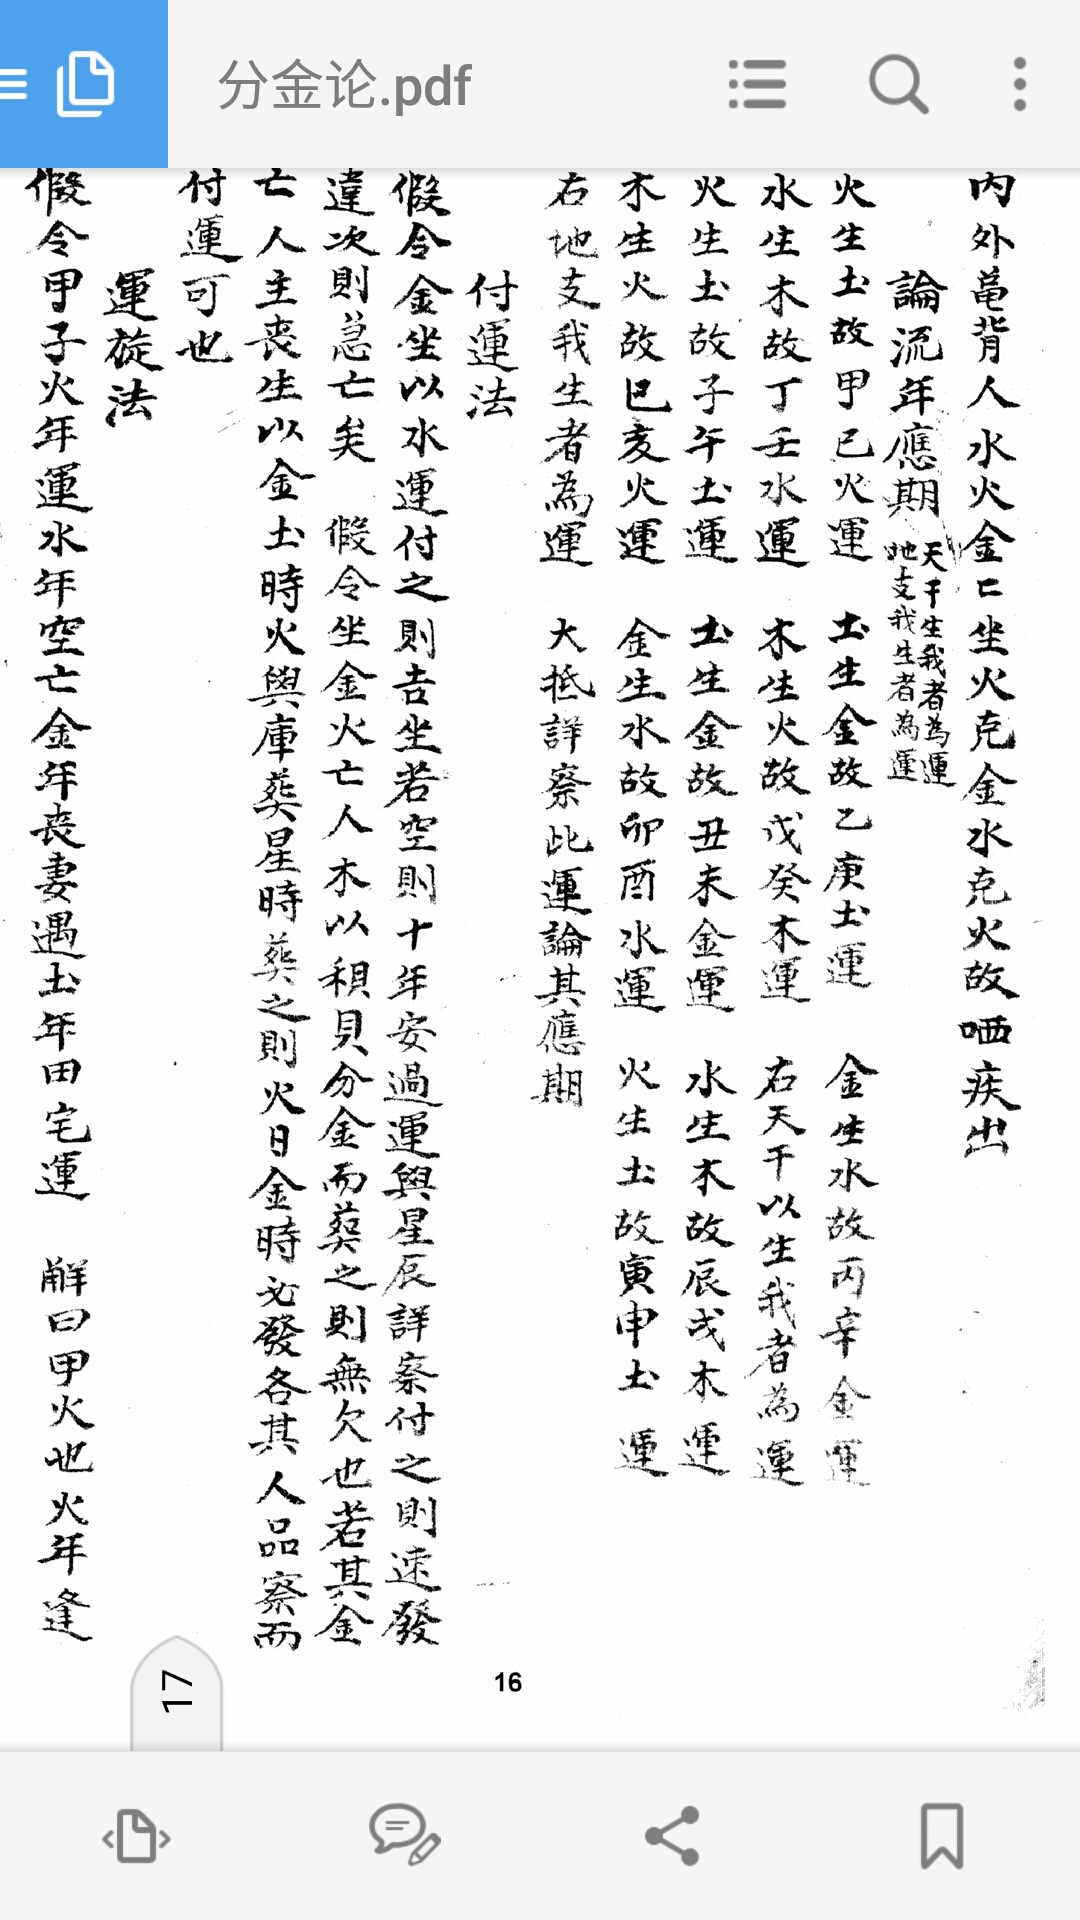 分金论.pdf
内外黽背人水火金亡坐火克金水克火故哂疾出
論流年應期 天干生我者為運
地支我生者為運
火生土故甲己火運 土生金故乙庚土運 金生水故丙辛金運
水生木故丁壬水運 木生火故戊癸木運 右天干以生我者為運
火生土故子午土運 土生金故丑未金運 水生木故辰戌木運
木生火故巳亥火運 金生水故卯酉水運 火生土故寅申土運
右地支我生者為運 大抵詳察此運論其應期
付運法
假令金坐以水運付之則吉坐若空則十年安過運與星辰詳察付之則速發
違次則急亡矣 假令坐金火亡人木以稂貝分金而葬之則無欠也若其金
亡人主喪生以金土時火與庫葬星時葬之則火日金時必發各其人品察而
付運可也
運旋法
假令甲子火年運水年空亡金年喪妻遇土年田宅運 解曰甲火也火年逢
16
17